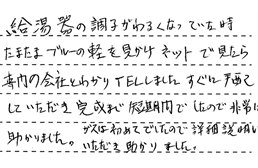 給湯器の調子がわるくなっていた時
たまたまブルーの軽を見かけネットで見たら
専門の会社とわかりTELしました すぐに対応
していただき完成まで短期間でしたので非常に
助かりました。ガスは初めてでしたので詳細説明も
いただき助かりました。